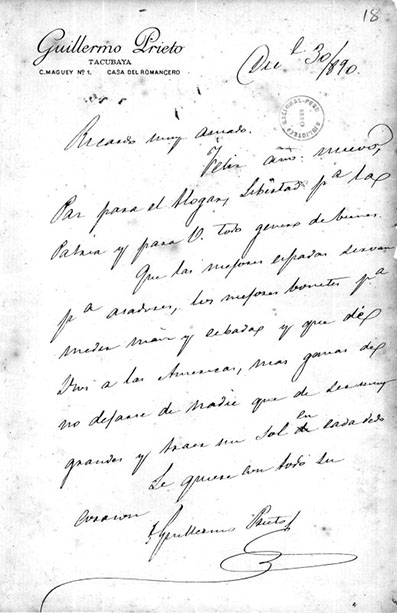 18
Guillermo Prieto
TACUBAYA
C. MAGUEY Nº 1. CASA DEL ROMANCERO
Dic e 30/890.
BIBLIOTECA NACIONAL - PERU
Ricardo muy amado.
Feliz año nuevo,
Paz para el Hogar, Libertad pª la
Patria y para V. todo genero de bienes.
Que las mejores espadas sirvan
pª asadores, los mejores bonetes pª
medir maiz y cebada y que dé
Dios a las Americas, mas ganas de
no dejarse de nadie que de ser muy
grandes y traer un sol en cada dedo
Le quiere con todo su
corazon
Guillermo Prieto